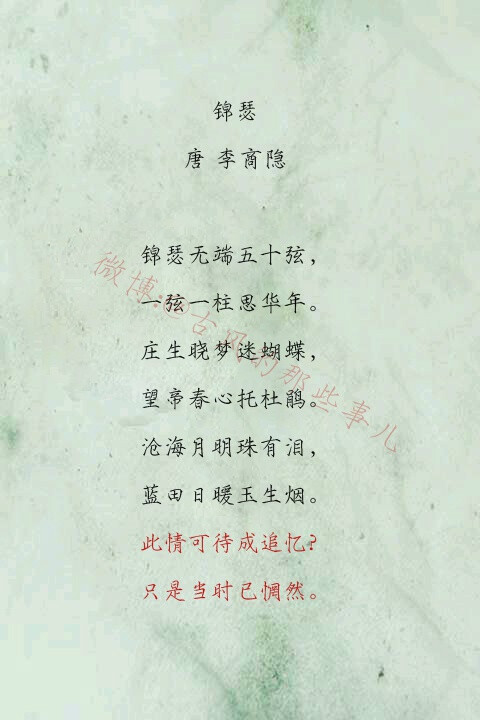 锦瑟
唐 李商隐
锦瑟无端五十弦，
一弦一柱思华年。
庄生晓梦迷蝴蝶，
望帝春心托杜鹃。
沧海月明珠有泪，
蓝田日暖玉生烟。
此情可待成追忆？
只是当时已惘然。
微博:@古风的那些事儿